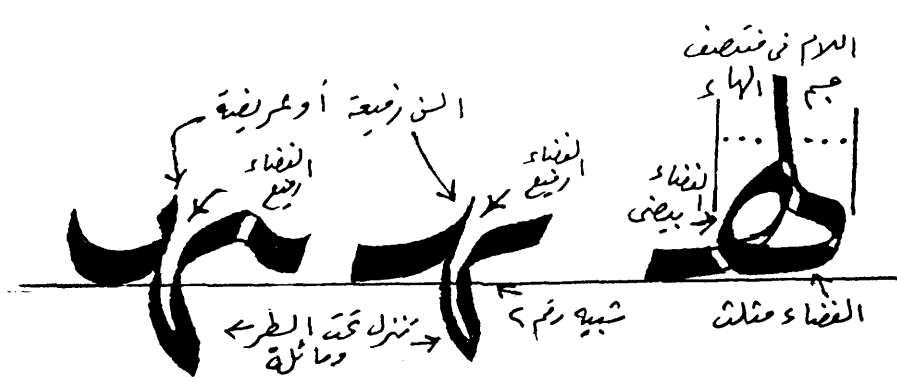 اللام فى منتصف
جسم الهاء
السن رفيعة أو عريضة
الفضاء
رفيع
الفضاء
رفيع
الفضاء
بيضى
الفضاء مثلث
شبيه رقم ٢
تنزل تحت السطر
ومائلة